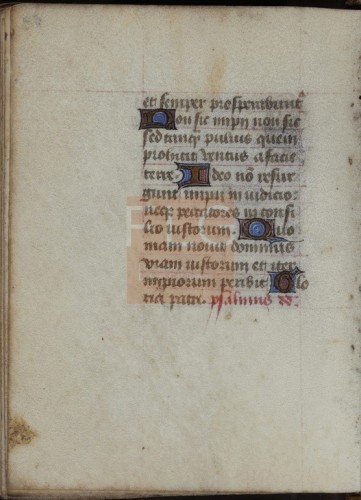 et semper prosperabunt᷑
Non sic impii non sic
sed tanq̃ puluis quem
prohicit ventus a facie
terre. Ideo nõ resur
gunt impii in iudicio
neq̃ peccatores in consi
lio iustorum. Quo
niam nouit dominus
viam iustorum et iter
impiorum peribit Glo
ria patri. psalmus dd: